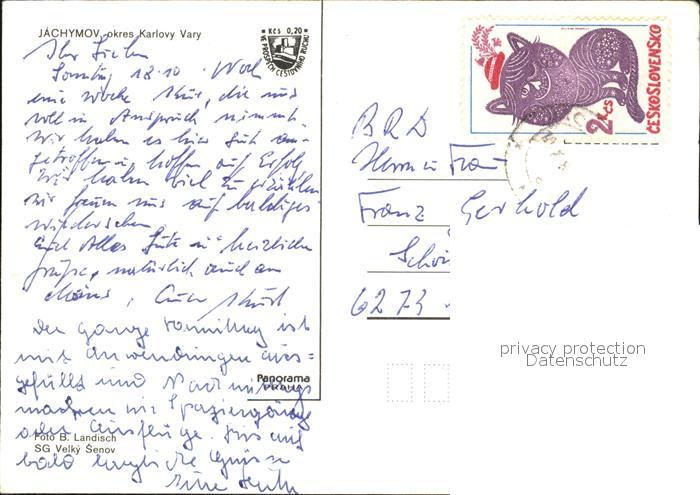 JÁCHYMOV, okres Karlovy Vary
Kčs 0,20
VE PROSPĚCH CESTOVNÍHO RUCHU
Ihr Lieben
Sonntag 18.10. Noch
eine Woche Kur, die uns
voll in Anspruch nimmt.
Wir haben es hier gut an-
getroffen u. hoffen auf Erfolg.
Wir haben viel zu erzählen
wir freuen uns auf baldiges
wiedersehen
Euch Alles Gute u. herzliche
Grüße, natürlich auch an
Euer Kurt
Der ganze Vormittag ist
mit Anwendungen aus=
gefüllt und Nachmittags
machen wir Spaziergänge
oder Ausflüge. Bis auf
bald herzliche Grüsse
Eure
Panorama
PRAHA
Foto B. Landisch
SG Velký Šenov
2 Kčs
ČESKOSLOVENSKO
BRD
Herrn u Frau
Franz Gerhold
6273
privacy protection
Datenschutz